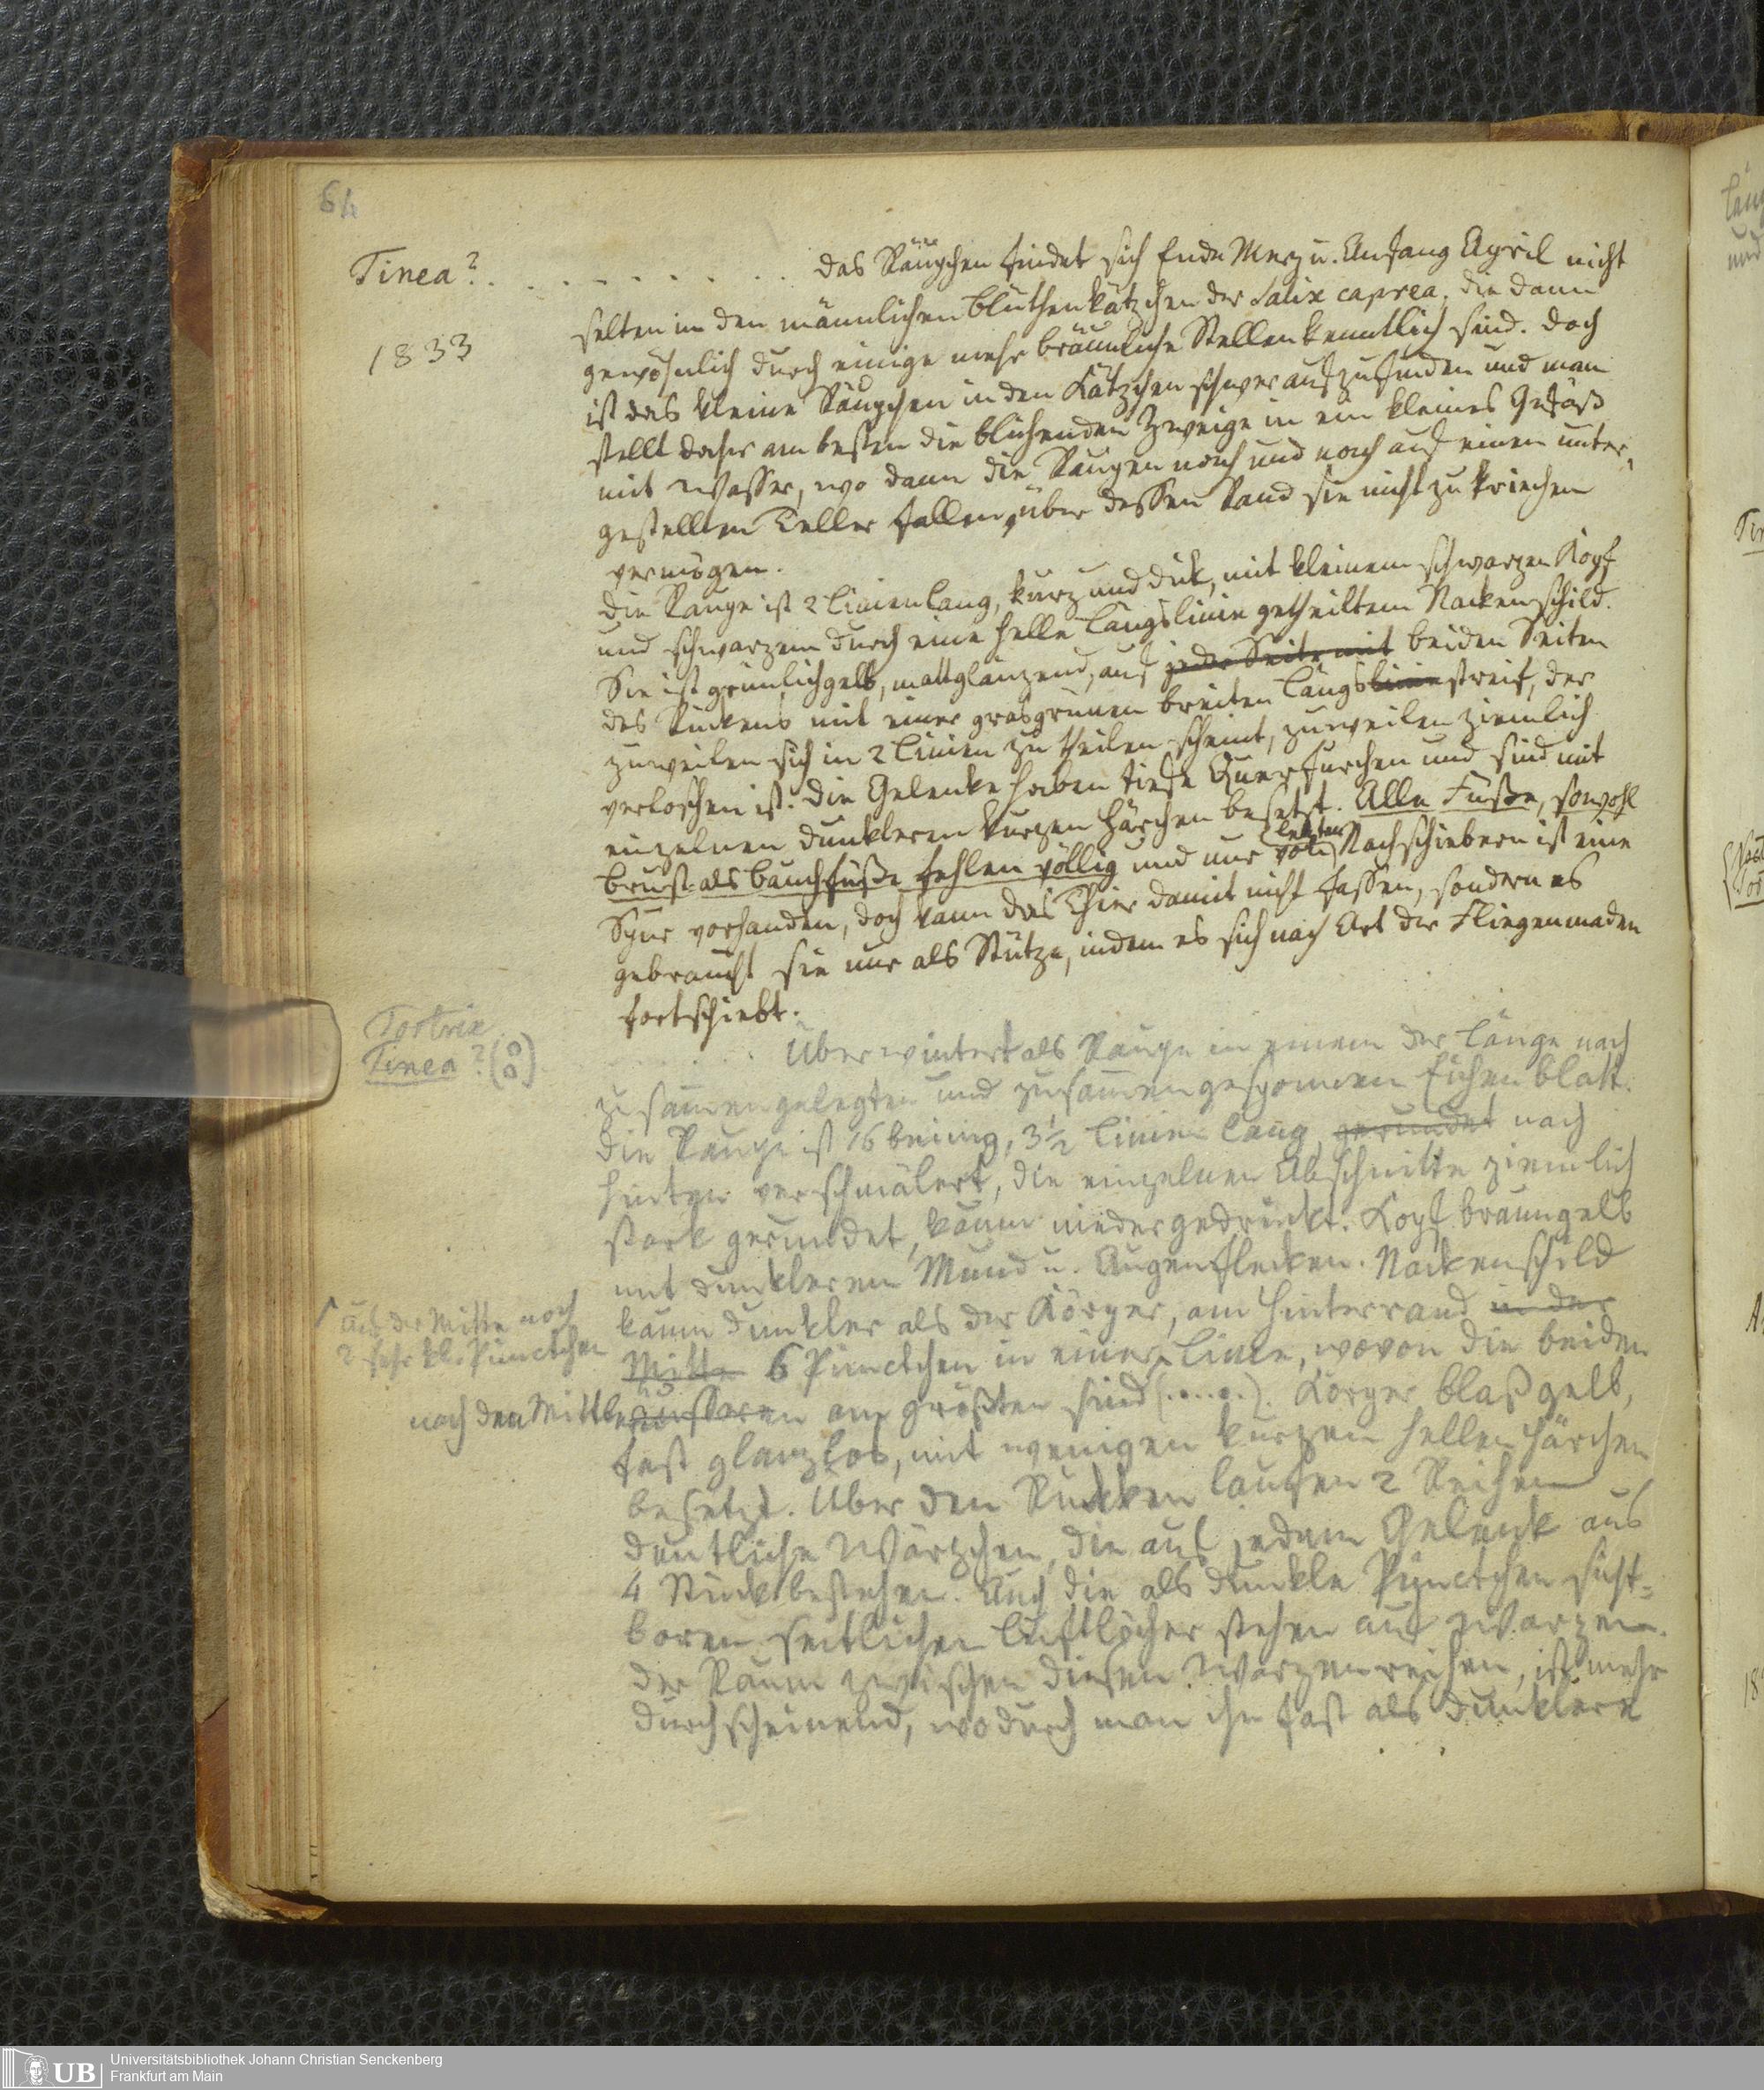 64
Tinea? . . . . . . . . . das Räupchen findet sich Ende Merz u. Anfang April nicht
selten in den männlichen Blüthenkätzchen der Salix caprea, die dann
1833
gewöhnlich durch einige mehr bräunliche Stellen kenntlich sind. Doch
ist das kleine Räupchen in den Kätzchen schwer aufzufinden und man
stellt daher am besten die blühenden Zweige in ein kleines Gefäß
mit Wasser, wo dann die Raupen nach und nach auf einen unter-
gestellten Teller fallen, über dessen Rand sie nicht zu kriechen
vermögen.
Die Raupe ist 2 Linien lang, kurz und dick, mit kleinem schwarzen Kopf
und schwarzem durch eine helle Längslinie getheiltem Nackenschild.
Sie ist grünlichgelb, mattglänzend, auf jeder Seite mit beiden Seiten
des Rückens mit einer grasgrünen breiten Längsliniestreif, der
zuweilen sich in 2 Linien zu theilen scheint, zuweilen ziemlich
verloschen ist. Die Gelenke haben tiefe Querfurchen und sind mit
einzelnen dunkleren kurzen Härchen besetzt. Alle Füße, sowohl
Brust- als Bauchfüße fehlen völlig und nur von Nachschiebern ist eine
Spur vorhanden, doch kann das Thier damit nicht fassen, sondern es
gebraucht sie nur als Stütze, indem es sich nach Art der Fliegenmaden
fortschiebt.
Tortrix
Tinea? (8)
. . . . Überwintert als Raupe in einem der Länge nach
zusammengelegten und zusammengesponnen Eichenblatt.
Die Raupe ist 16beinig, 3½ Linien lang, gerundet nach
hinten verschmälert, die einzelnen Abschnitte ziemlich
stark gerundet, kaum niedergedrückt. Kopf braungelb
mit dunklerem Mund u. Augenflecken. Nackenschild
kaum dunkler als der Körper, am Hinterrand in der
auf der Mitte noch
2 sehr kl. Pünctchen
Mitte 6 Pünctchen in einer Linie, wovon die beiden
nach den Mittleren äußeren am größten sind (......). Körper blaßgelb,
fast glanzlos, mit wenigen kurzen hellen Härchen
besetzt. Über den Rücken laufen 2 Reihen
deutliche Wärzchen, die auf jedem Gelenk aus
4 Stück bestehen. Auch die als dunkle Pünctchen sicht-
baren seitlichen Luftlöcher stehen auf Warzen.
Der Raum zwischen diesen Warzenreihen, ist mehr
durchscheinend, wodurch man ihn fast als dunklere
Universitätsbibliothek Johann Christian Senckenberg
Frankfurt am Main
UB